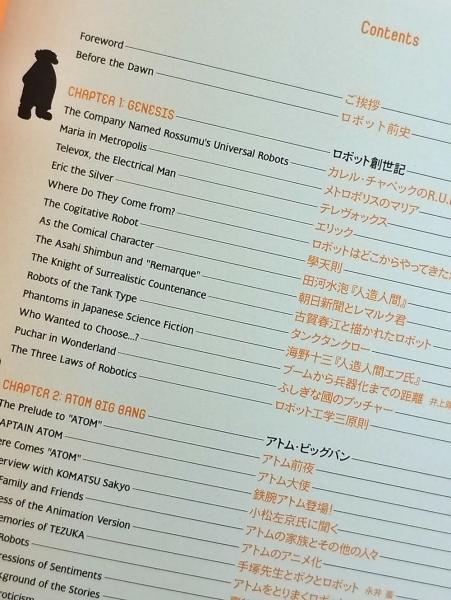 Contents
Foreword ご挨拶
Before the Dawn ロボット前史
CHAPTER 1: GENESIS ロボット創世記
The Company Named Rossumu's Universal Robots カレル・チャペックのR.U.
Maria in Metropolis メトロポリスのマリア
Televox, the Electrical Man テレヴォックス
Eric the Silver エリック
Where Do They Come from? ロボットはどこからやってきた
The Cogitative Robot 學天則
As the Comical Character 田河水泡『人造人間』
The Asahi Shimbun and "Remarque" 朝日新聞とレマルク君
The Knight of Surrealistic Countenance 古賀春江と描かれたロボット
Robots of the Tank Type タンクタンクロー
Phantoms in Japanese Science Fiction 海野十三『人造人間エフ氏』
Who Wanted to Choose...? ブームから兵器化までの距離 井上
Puchar in Wonderland ふしぎな國のプッチャー
The Three Laws of Robotics ロボット工学三原則
CHAPTER 2: ATOM BIG BANG アトム・ビッグバン
The Prelude to "ATOM" アトム前夜
APTAIN ATOM アトム大使
ere Comes "ATOM" 鉄腕アトム登場!
erview with KOMATSU Sakyo 小松左京氏に聞く
Family and Friends アトムの家族とその他の人々
ess of the Animation Version アトムのアニメ化
emories of TEZUKA 手塚先生とボクとロボット 永井 豪
Robots アトムをとりまくロボッ
ressions of Sentiments
kground of the Stories
roticism